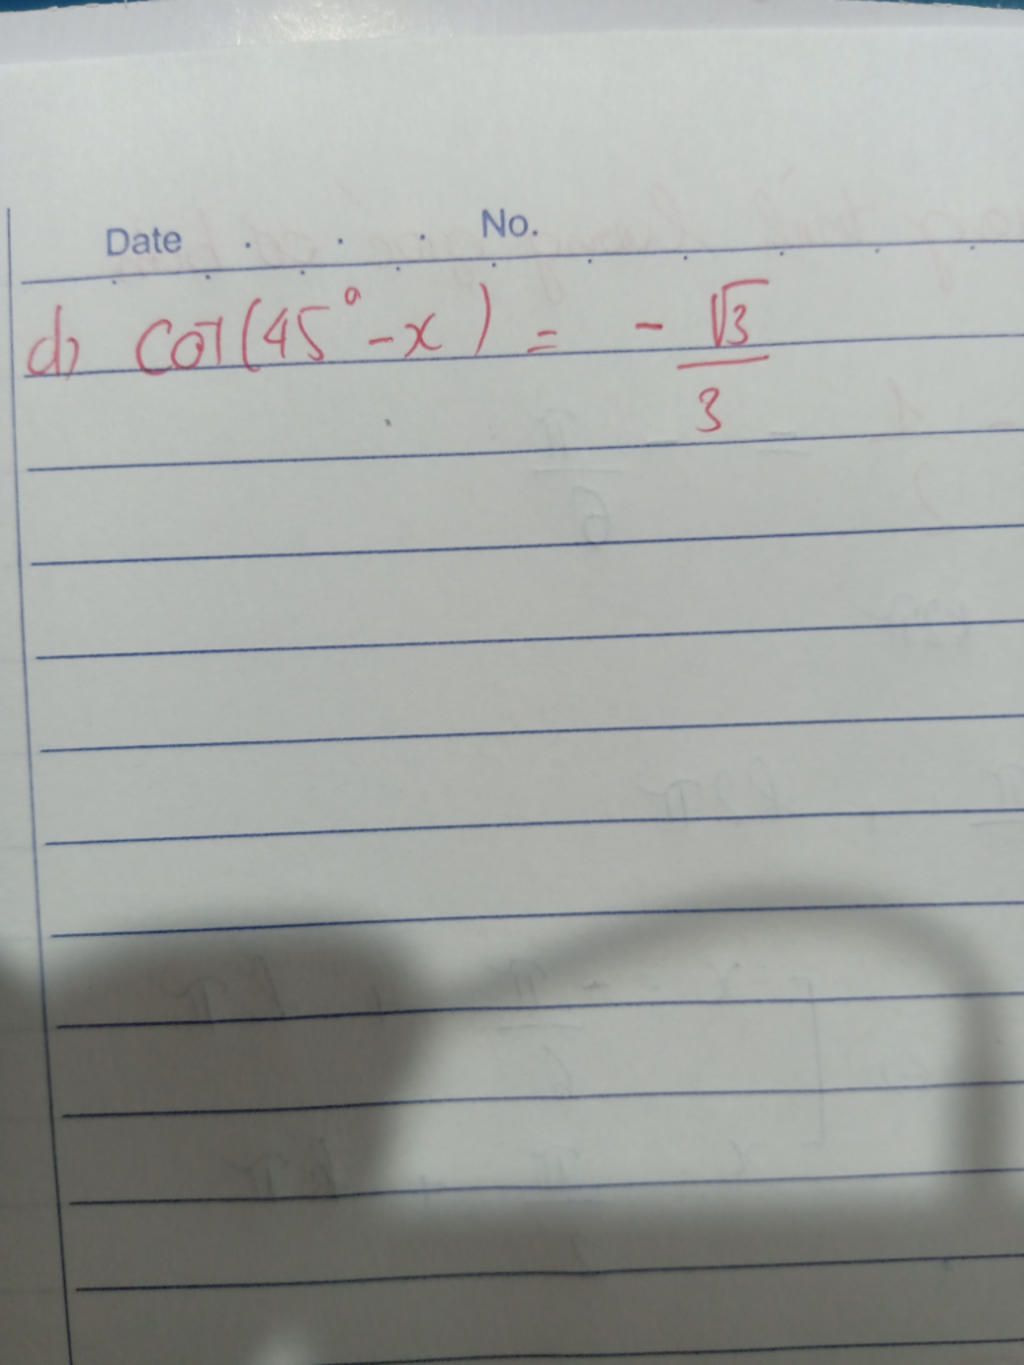 Date . . . No.
d) cot(45° - x) = - √3/3